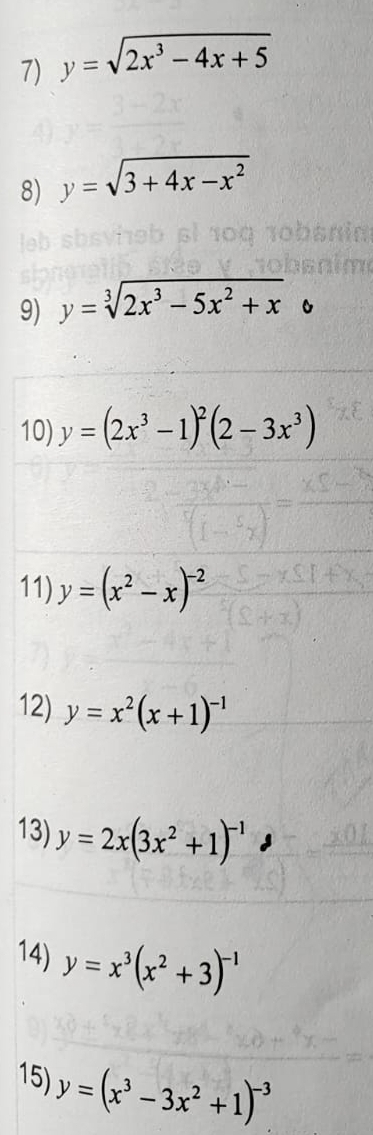 7) y = √(2x³ − 4x + 5)
8) y = √(3 + 4x − x²)
9) y = ∛(2x³ − 5x² + x)
10) y = (2x³ − 1)²(2 − 3x³)
11) y = (x² − x)⁻²
12) y = x²(x + 1)⁻¹
13) y = 2x(3x² + 1)⁻¹
14) y = x³(x² + 3)⁻¹
15) y = (x³ − 3x² + 1)⁻³